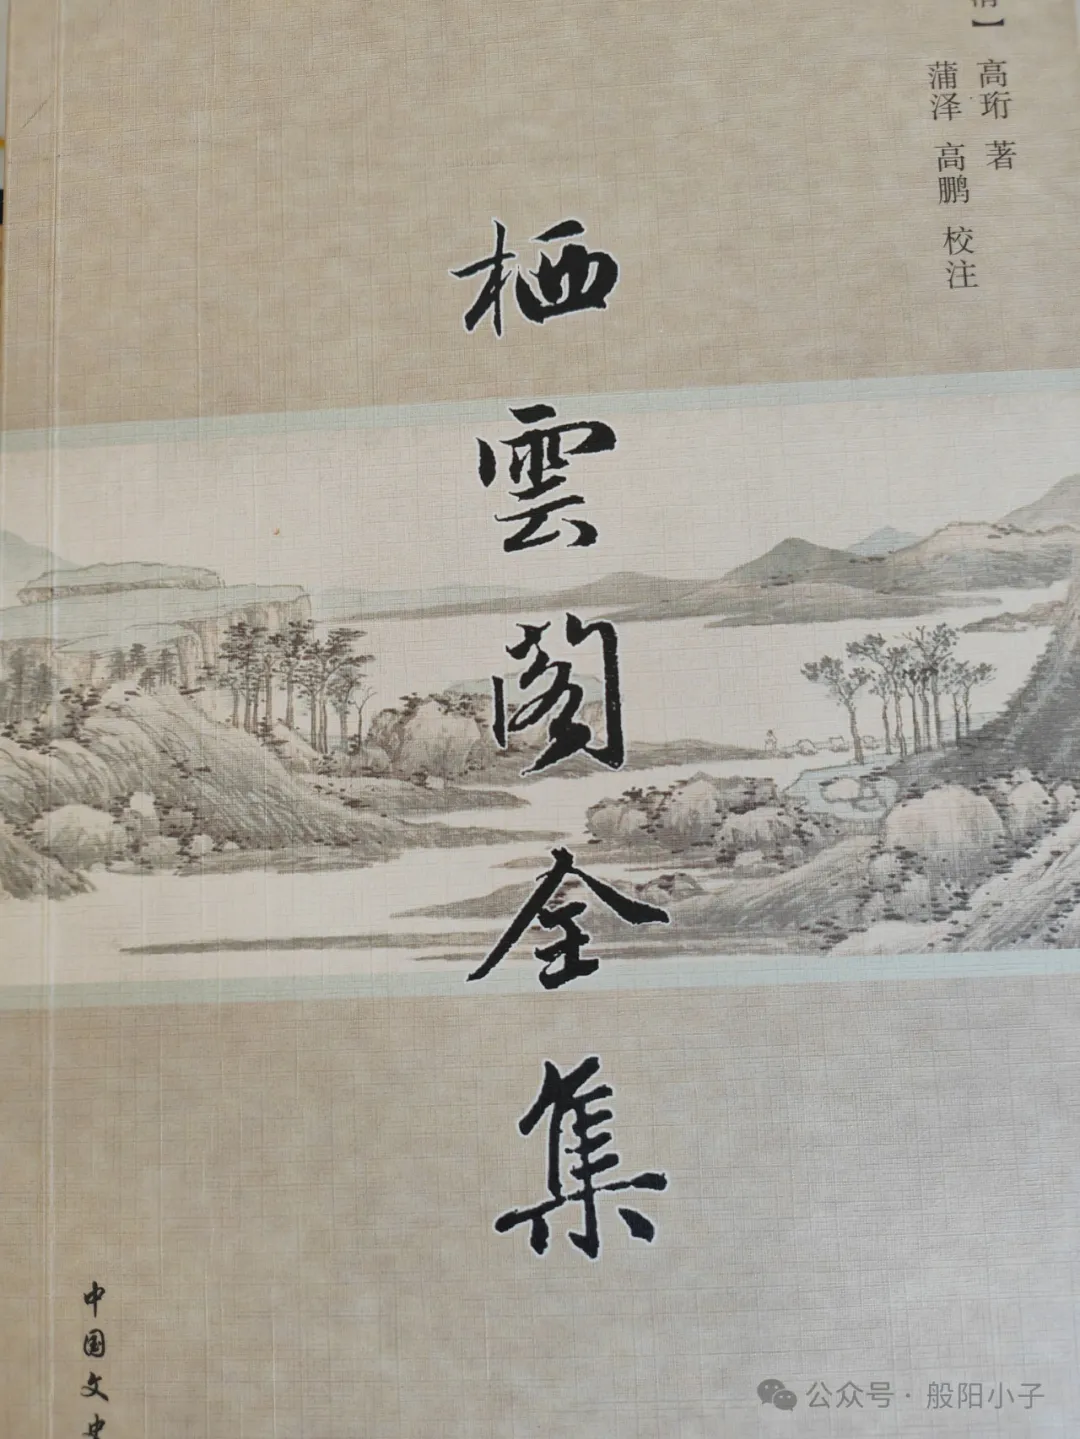 清】 高珩 著
蒲泽 高鹏 校注
栖雲阁全集
中国文史
公众号 · 般阳小子